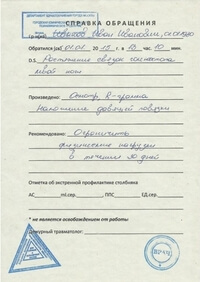 СПРАВКА ОБРАЩЕНИЯ
Обратился (ас) 01.01 2015 г. в 13 час. 10 мин.
D.S. Растяжение связок голеностопа
левой ноги
Произведено: Осмотр, R-графия
Наложение давящей повязки
Рекомендовано: Ограничить
физические нагрузки
в течение 30 дней
Отметка об экстренной профилактике столбняка
АС ml.сер. , ППС ЕД.сер.
* не является освобождением от работы:
Дежурный травматолог: